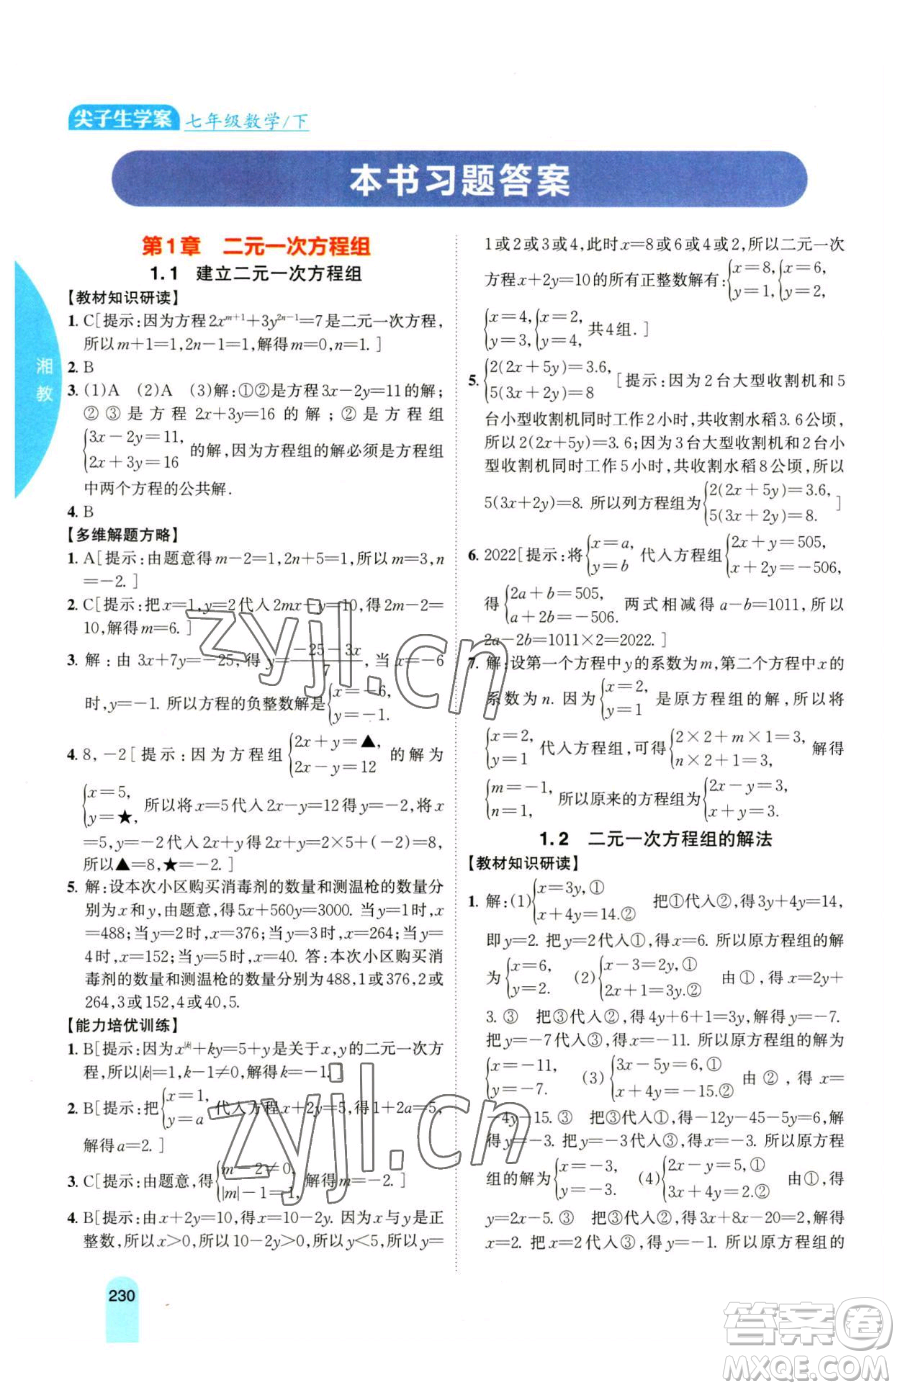 尖子生学案 七年级数学/下
本书习题答案
湘教
第1章 二元一次方程组
1.1 建立二元一次方程组
【教材知识研读】
1. C[提示:因为方程2x^{m+1}+3y^{2n-1}=7是二元一次方程,
所以m+1=1,2n-1=1,解得m=0,n=1.]
2. B
3. (1)A (2)A (3)解:①②是方程3x-2y=11的解;
②③是方程2x+3y=16的解;②是方程组
{3x-2y=11, 2x+3y=16 的解,因为方程组的解必须是方程组
中两个方程的公共解.
4. B
【多维解题方略】
1. A[提示:由题意得m-2=1,2n+5=1,所以m=3,n
=-2.]
2. C[提示:把x=1,y=2代入2mx-y=10,得2m-2=
10,解得m=6.]
3. 解:由3x+7y=-25,得y=(-25-3x)/7,当x=-6
时,y=-1.所以方程的负整数解是{x=-6, y=-1.
4. 8,-2[提示:因为方程组{2x+y=▲, 2x-y=12 的解为
{x=5, y=★, 所以将x=5代入2x-y=12得y=-2,将x
=5,y=-2代入2x+y得2x+y=2×5+(-2)=8,
所以▲=8,★=-2.]
5. 解:设本次小区购买消毒剂的数量和测温枪的数量
分别为x和y,由题意,得5x+560y=3000.当y=1时,x
=488;当y=2时,x=376;当y=3时,x=264;当y=4
时,x=152;当y=5时,x=40.答:本次小区购买消
毒剂的数量和测温枪的数量分别为488,1或376,2或
264,3或152,4或40,5.
【能力培优训练】
1. B[提示:因为x^{|k|}+ky=5+y是关于x,y的二元一次方
程,所以|k|=1,k-1≠0,解得k=-1.]
2. B[提示:把{x=1, y=a 代入方程x+2y=5,得1+2a=5,
解得a=2.]
3. C[提示:由题意,得{m-2≠0, |m|-1=1, 解得m=-2.]
4. B[提示:由x+2y=10,得x=10-2y.因为x,y都是正
整数,所以x>0,所以10-2y>0,所以y<5,所以y=
1或2或3或4,此时x=8或6或4或2,所以二元一次
方程x+2y=10的所有正整数解有:{x=8, y=1, {x=6, y=2,
{x=4, y=3, {x=2, y=4, 共4组.]
5. {2(2x+5y)=3.6, 5(3x+2y)=8 [提示:因为2台大型收割机和5
台小型收割机同时工作2小时,共收割水稻3.6公顷,
所以2(2x+5y)=3.6;因为3台大型收割机和2台小
型收割机同时工作5小时,共收割水稻8公顷,所以
5(3x+2y)=8.所以列方程组为{2(2x+5y)=3.6, 5(3x+2y)=8. ]
6. 2022[提示:将{x=a, y=b 代入方程组{2x+y=505, x+2y=-506,
得{2a+b=505, a+2b=-506. 两式相减得a-b=1011,所以
2a-2b=1011×2=2022.]
7. 解:设第一个方程中y的系数为m,第二个方程中x的
系数为n.因为{x=2, y=1 是原方程组的解,所以将
{x=2, y=1 代入方程组,可得{2×2+m×1=3, n×2+1=3, 解得
{m=-1, n=1, 所以原来的方程组为{2x-y=3, x+y=3.
1.2 二元一次方程组的解法
【教材知识研读】
1. 解:(1){x=3y,① x+4y=14.② 把①代入②,得3y+4y=14,
即y=2.把y=2代入①,得x=6.所以原方程组的解
为{x=6, y=2. (2){x-3=2y,① 2x+1=3y.② 由①,得x=2y+
3.③ 把③代入②,得4y+6+1=3y,解得y=-7.
把y=-7代入③,得x=-11.所以原方程组的解为
{x=-11, y=-7. (3){3x-5y=6,① x+4y=-15.② 由②,得x=
-4y-15.③ 把③代入①,得-12y-45-5y=6,解得
y=-3.把y=-3代入③,得x=-3.所以原方程
组的解为{x=-3, y=-3. (4){2x-y=5,① 3x+4y=2.② 由①,得
y=2x-5.③ 把③代入②,得3x+8x-20=2,解得
x=2.把x=2代入③,得y=-1.所以原方程组的
230
zyjl.cn
zyjl.cn
答案圈
MXQE.COM